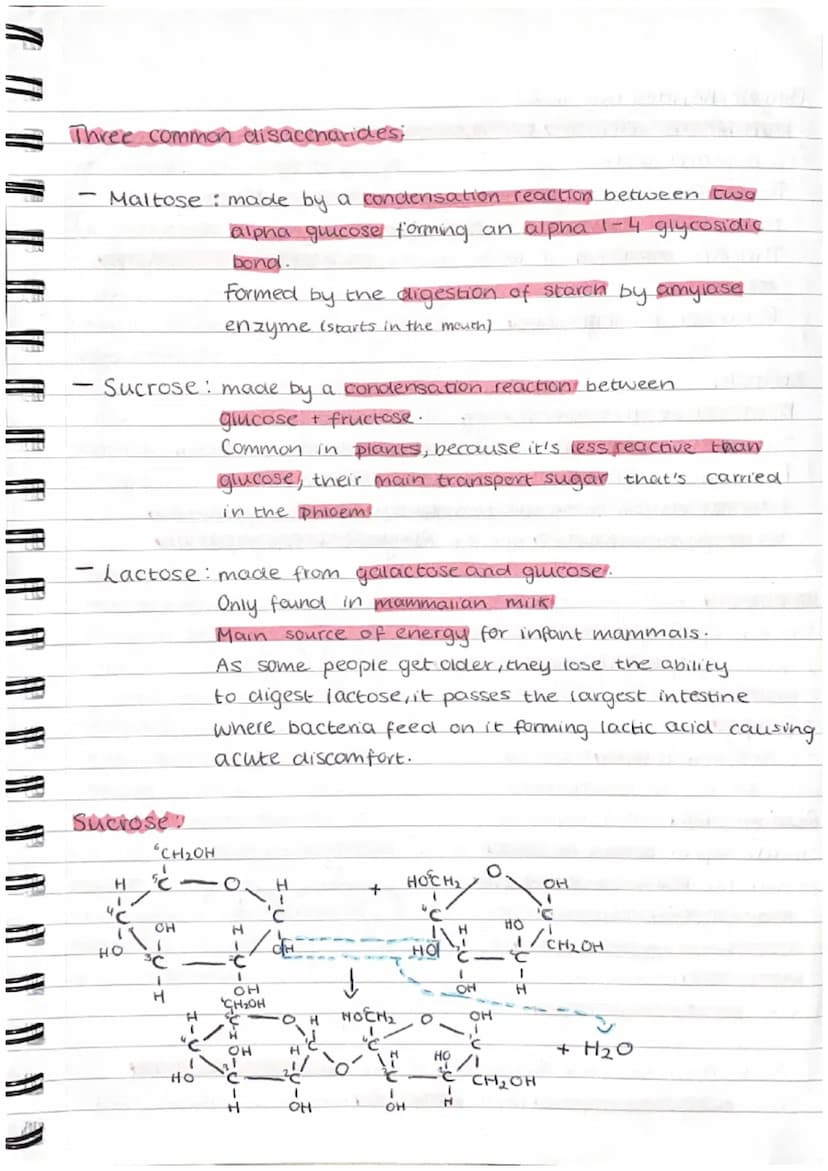 Three common disaccharides:
- Maltose : made by a condensation reaction between two
alpha glucose forming an alpha 1-4 glycosidic
bond.
Formed by the digestion of starch by amylase
enzyme (starts in the mouth)
- Sucrose : made by a condensation reaction between
glucose + fructose.
Common in plants, because it's less reactive than
glucose, their main transport sugar that's carried
in the phloem.
- Lactose : made from galactose and glucose.
Only found in mammalian milk
Main source of energy for infant mammals.
As some people get older, they lose the ability
to digest lactose, it passes the largest intestine
where bacteria feed on it forming lactic acid causing
acute discomfort.
Sucrose:
⁶CH₂OH
H ⁵C O H + HOCH₂ O OH
⁴C ¹C C C
OH H H HO
HO ³C ²C OH HO C C CH₂OH
H OH OH H
CH₂OH
H C O H HOCH₂ O OH
H
C OH H C C H HO C + H₂O
HO C C O C C CH₂OH
H OH OH H